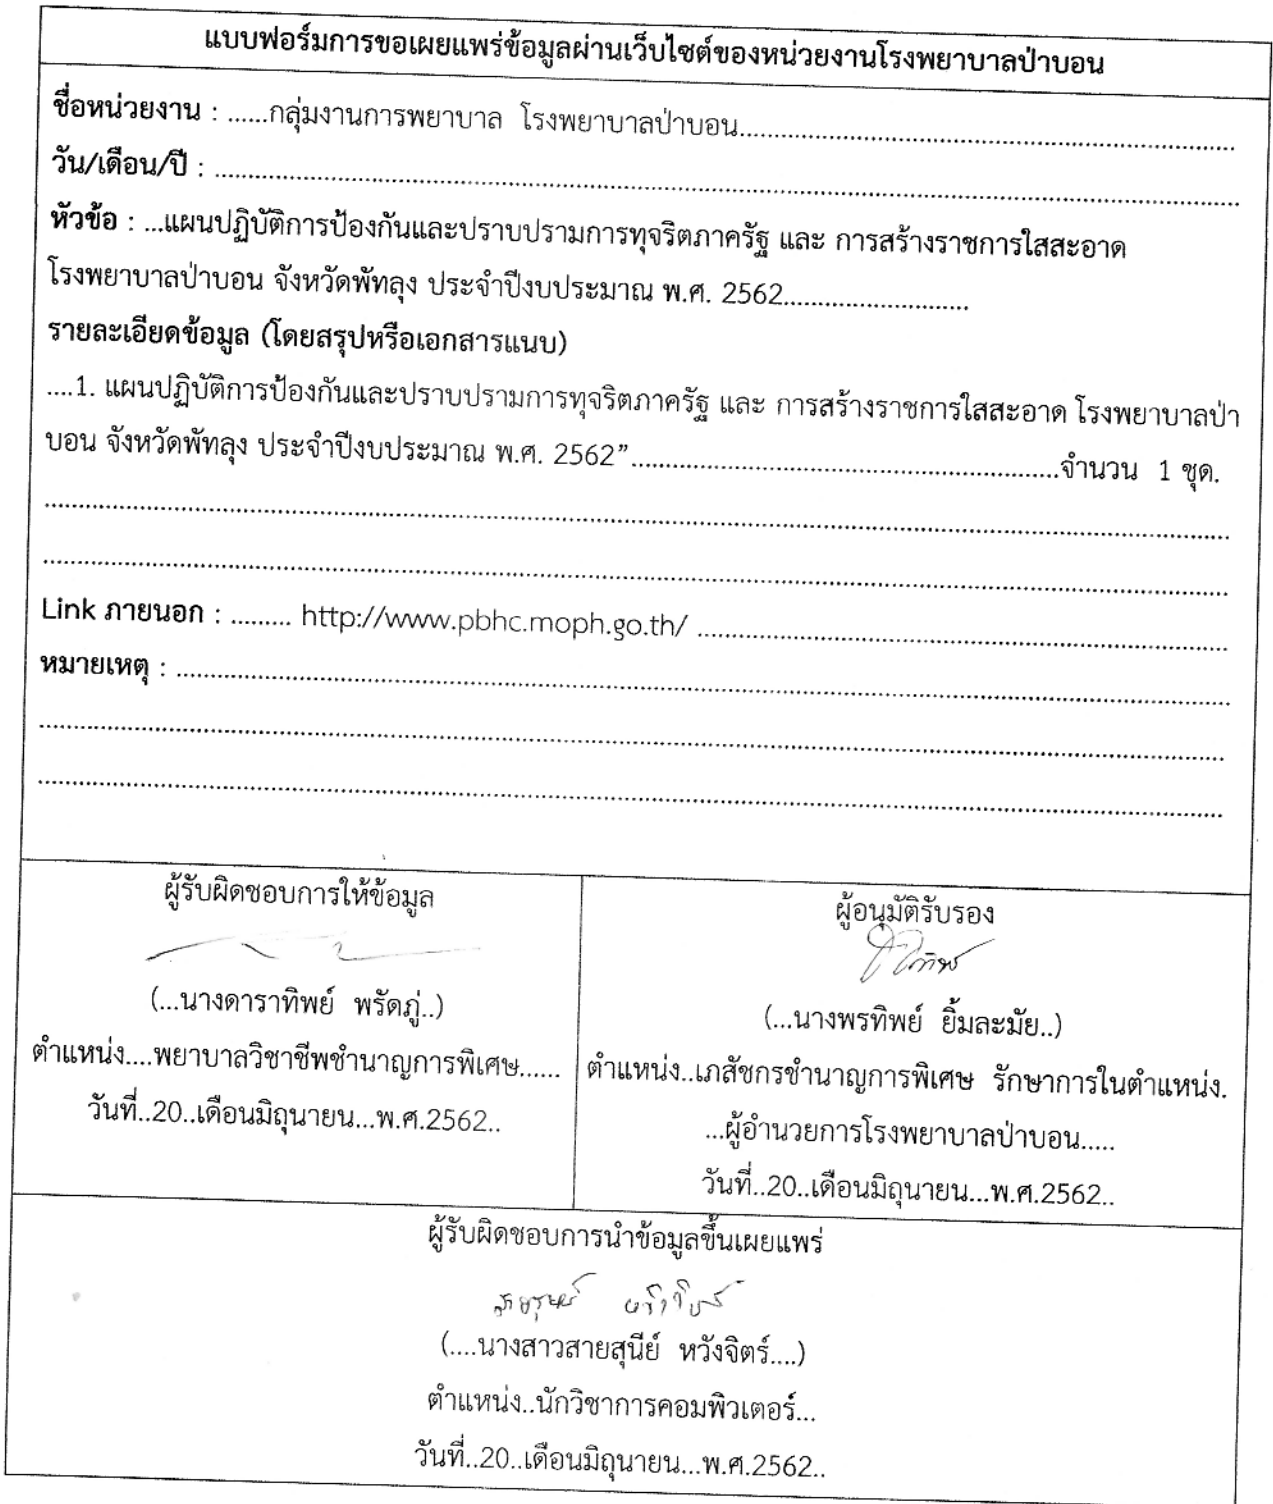 แบบฟอร์มการขอเผยแพร่ข้อมูลผ่านเว็บไซต์ของหน่วยงานโรงพยาบาลป่าบอน
ชื่อหน่วยงาน : ......กลุ่มงานการพยาบาล โรงพยาบาลป่าบอน..........................................................................
วัน/เดือน/ปี : ..........................................................................................................................................
หัวข้อ : ...แผนปฏิบัติการป้องกันและปราบปรามการทุจริตภาครัฐ และ การสร้างราชการใสสะอาด
โรงพยาบาลป่าบอน จังหวัดพัทลุง ประจำปีงบประมาณ พ.ศ. 2562...........................
รายละเอียดข้อมูล (โดยสรุปหรือเอกสารแนบ)
....1. แผนปฏิบัติการป้องกันและปราบปรามการทุจริตภาครัฐ และ การสร้างราชการใสสะอาด โรงพยาบาลป่า
บอน จังหวัดพัทลุง ประจำปีงบประมาณ พ.ศ. 2562”...............................................................จำนวน 1 ชุด.
Link ภายนอก : ......... http://www.pbhc.moph.go.th/ ...............................................................................
หมายเหตุ : ...............................................................................................................................................
ผู้รับผิดชอบการให้ข้อมูล
(...นางดาราทิพย์ พรัดภู่..)
ตำแหน่ง....พยาบาลวิชาชีพชำนาญการพิเศษ......
วันที่..20..เดือนมิถุนายน...พ.ศ.2562..
ผู้อนุมัติรับรอง
(...นางพรทิพย์ ยิ้มละมัย..)
ตำแหน่ง..เภสัชกรชำนาญการพิเศษ รักษาการในตำแหน่ง.
...ผู้อำนวยการโรงพยาบาลป่าบอน.....
วันที่..20..เดือนมิถุนายน...พ.ศ.2562..
ผู้รับผิดชอบการนำข้อมูลขึ้นเผยแพร่
(....นางสาวสายสุนีย์ หวังจิตร์....)
ตำแหน่ง..นักวิชาการคอมพิวเตอร์...
วันที่..20..เดือนมิถุนายน...พ.ศ.2562..